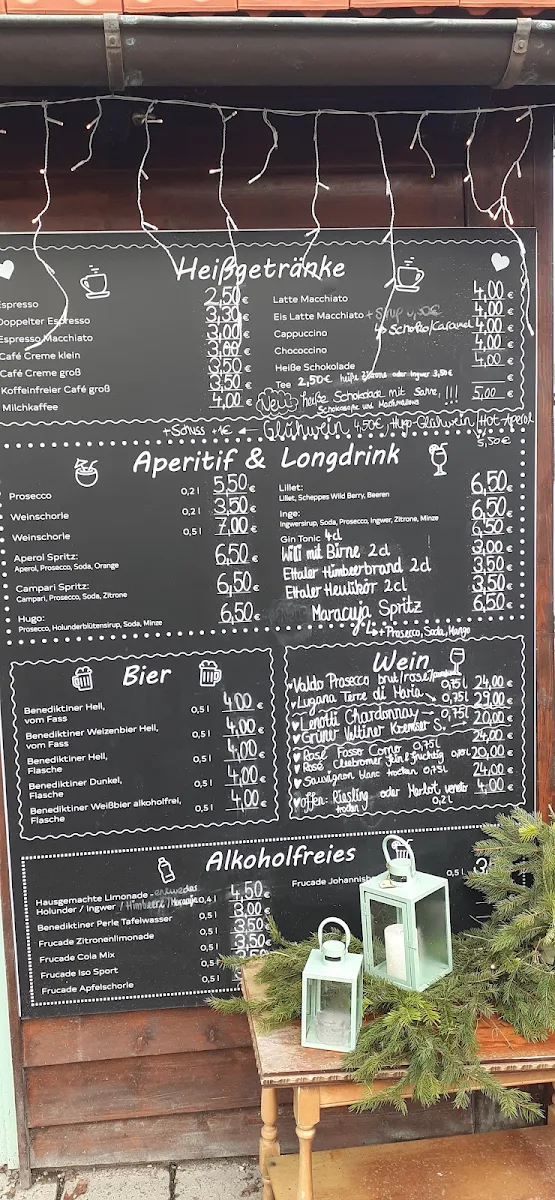 Heißgetränke
Espresso 2,50 €
Doppelter Espresso 3,30 €
Espresso Macchiato 3,00 €
Café Creme klein 3,00 €
Café Creme groß 3,50 €
Koffeinfreier Café groß 3,50 €
Milchkaffee 4,00 €
Latte Macchiato 4,00 €
Eis Latte Macchiato + Sirup 0,50€ 4,00 €
↳ Schoko/Caramel
Cappuccino 4,00 €
Chococcino 4,00 €
Heiße Schokolade 4,00 €
Tee 2,50€ heiße Zitrone oder Ingwer 3,50€ €
Neu heiße Schokolade mit Sahne, !!! 5,00 €
Schokosoße und Marshmallows
+Schuss +1€ ← Glühwein 4,50€, Hugo-Glühwein/Hot-Aperol
5,50€
Aperitif & Longdrink
Prosecco 0,2 l 5,50 €
Weinschorle 0,2 l 3,50 €
Weinschorle 0,5 l 7,00 €
Aperol Spritz: 6,50 €
Aperol, Prosecco, Soda, Orange
Campari Spritz: 6,50 €
Campari, Prosecco, Soda, Zitrone
Hugo: 6,50 €
Prosecco, Holunderblütensirup, Soda, Minze
Lillet: 6,50 €
Lillet, Scheppes Wild Berry, Beeren
Inge: 6,50 €
Ingwersirup, Soda, Prosecco, Ingwer, Zitrone, Minze
Gin Tonic 4cl 6,50 €
Willi mit Birne 2cl 3,00 €
Ettaler Himbeerbrand 2cl 3,50 €
Ettaler Heulikör 2cl 3,50 €
Maracuja Spritz 6,50 €
↳ + Prosecco, Soda, Mango
Bier
Benediktiner Hell, 0,5 l 4,00 €
vom Fass
Benediktiner Weizenbier Hell, 0,5 l 4,00 €
vom Fass
Benediktiner Hell, 0,5 l 4,00 €
Flasche
Benediktiner Dunkel, 0,5 l 4,00 €
Flasche
Benediktiner Weißbier alkoholfrei, 0,5 l 4,00 €
Flasche
Wein
Valdo Prosecco brut/rosé 0,75l 24,00 €
Lugana Terre di Maria 0,75l 29,00 €
Lenotti Chardonnay 0,75l 20,00 €
Grüner Veltliner Kremser S. 24,00 €
Rosé Fosso Corno 0,75l
Rosé Cleebronner fein & fruchtig 20,00 €
Sauvignon blanc trocken 0,75l 24,00 €
offen: Riesling oder Merlot 4,00 €
trocken 0,2l
Alkoholfreies
Hausgemachte Limonade - entweder
Holunder / Ingwer / Himbeere / Maracuja 0,4 l 4,50 €
Benediktiner Perle Tafelwasser 0,5 l 3,00 €
Frucade Zitronenlimonade 0,5 l 3,50 €
Frucade Cola Mix 0,5 l 3,50 €
Frucade Iso Sport 0,5 l
Frucade Apfelschorle 0,5 l
Frucade 0,5 l